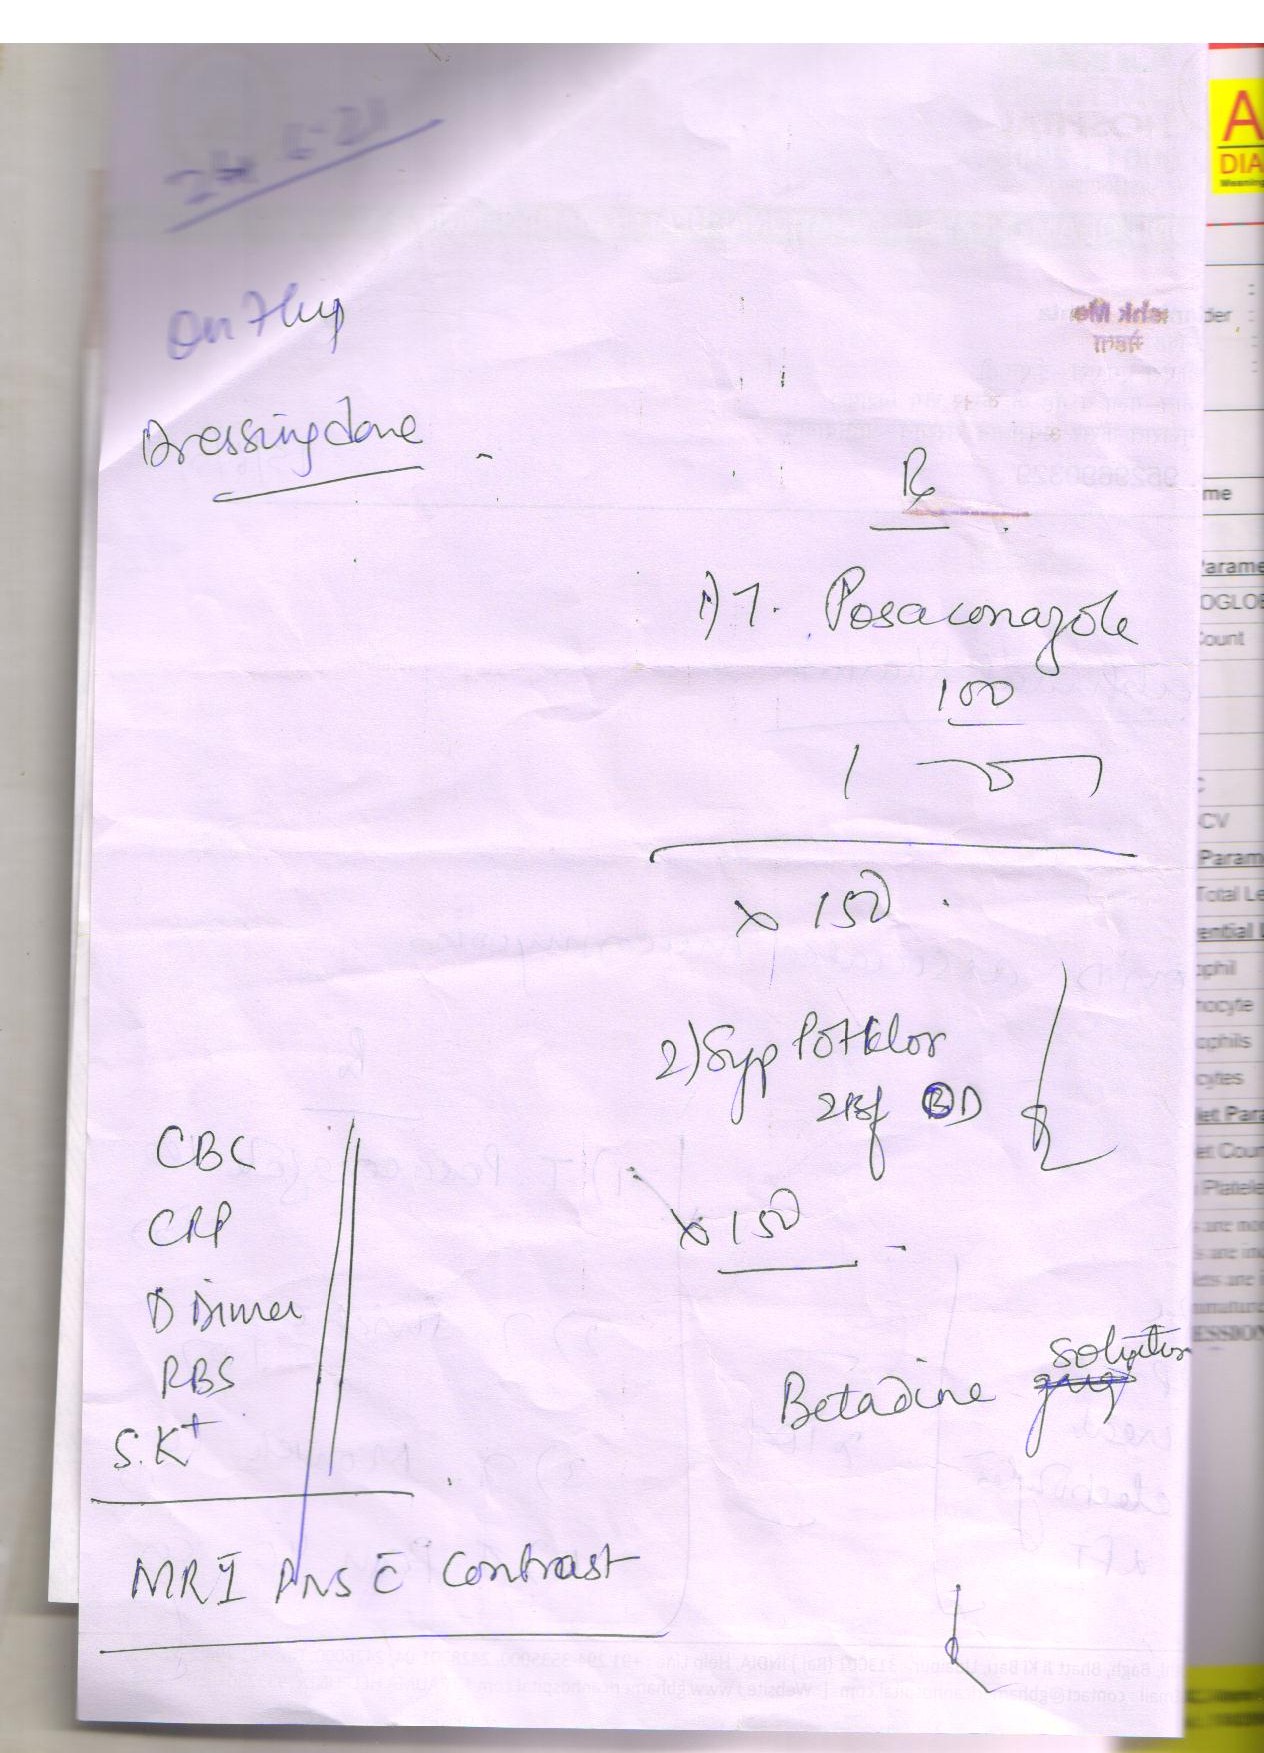 24.6.21
Dressing done
Rx
1) T. Posaconazole
100
1
x 150
2) Syp Potklor
2tsf BD
x 150
Betadine solution
CBC
CRP
D Dimer
RBS
S.K+
MRI PNS c̄ Contrast
A
DIA
der :
me
Parame
OGLOB
Count
CV
Param
Total Le
ential L
ophil
hocyte
ophils
cytes
let Para
et Coun
Platele